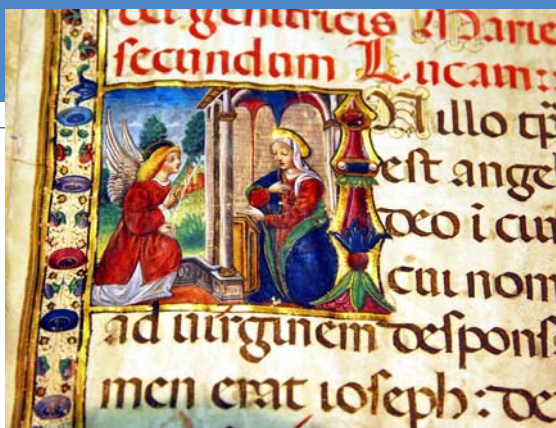 dei genitricis Marie
secundum Lucam:
N illo tp̄
est ange
deo i cui
cui nom
ad uirginem desponſ
men erat ioſeph: de